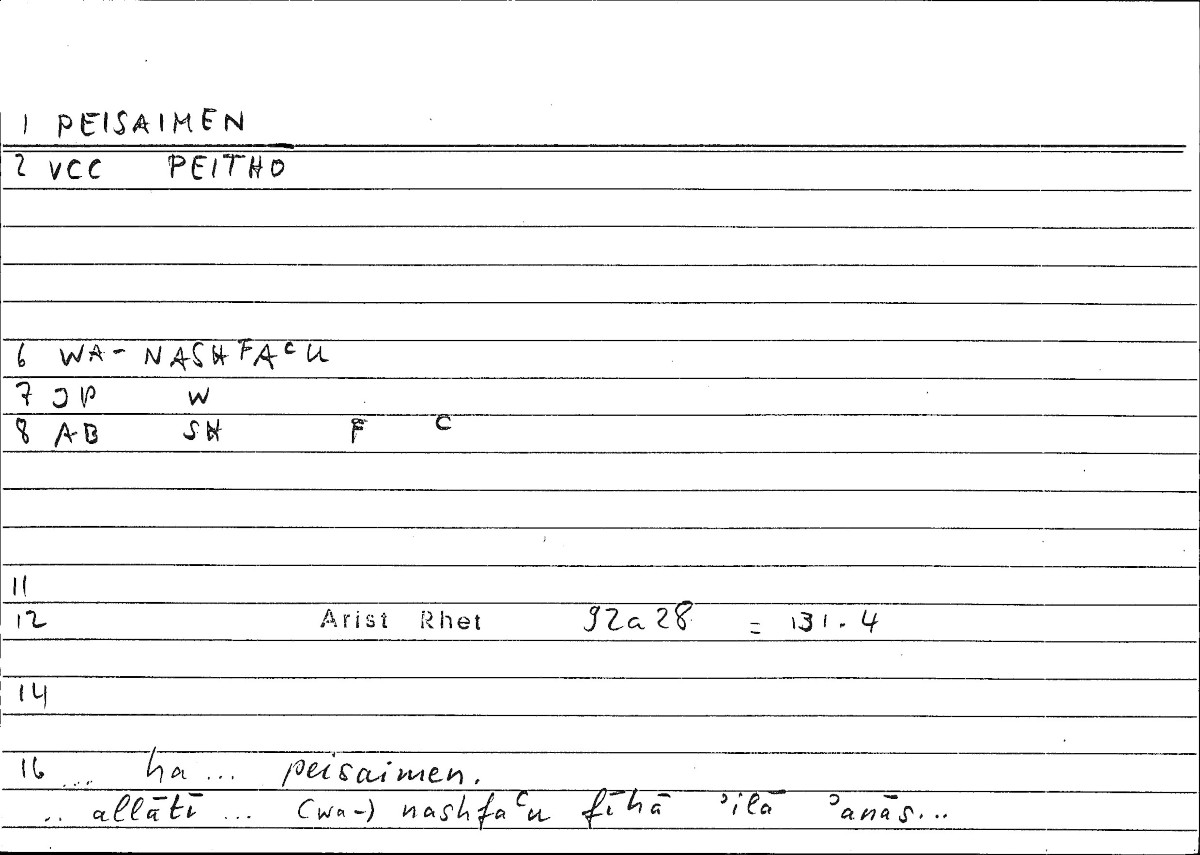 1 PEISAIMEN
2 VCC PEITHO
6 WA- NASHFAᶜU
7 JP W
8 AB SH F ᶜ
11
12 Arist Rhet 92a28 = 131.4
14
16 ... ha ... peisaimen.
.. allātī ... (wa-) nashfaᶜu fīhā ʾilā ʾanās...